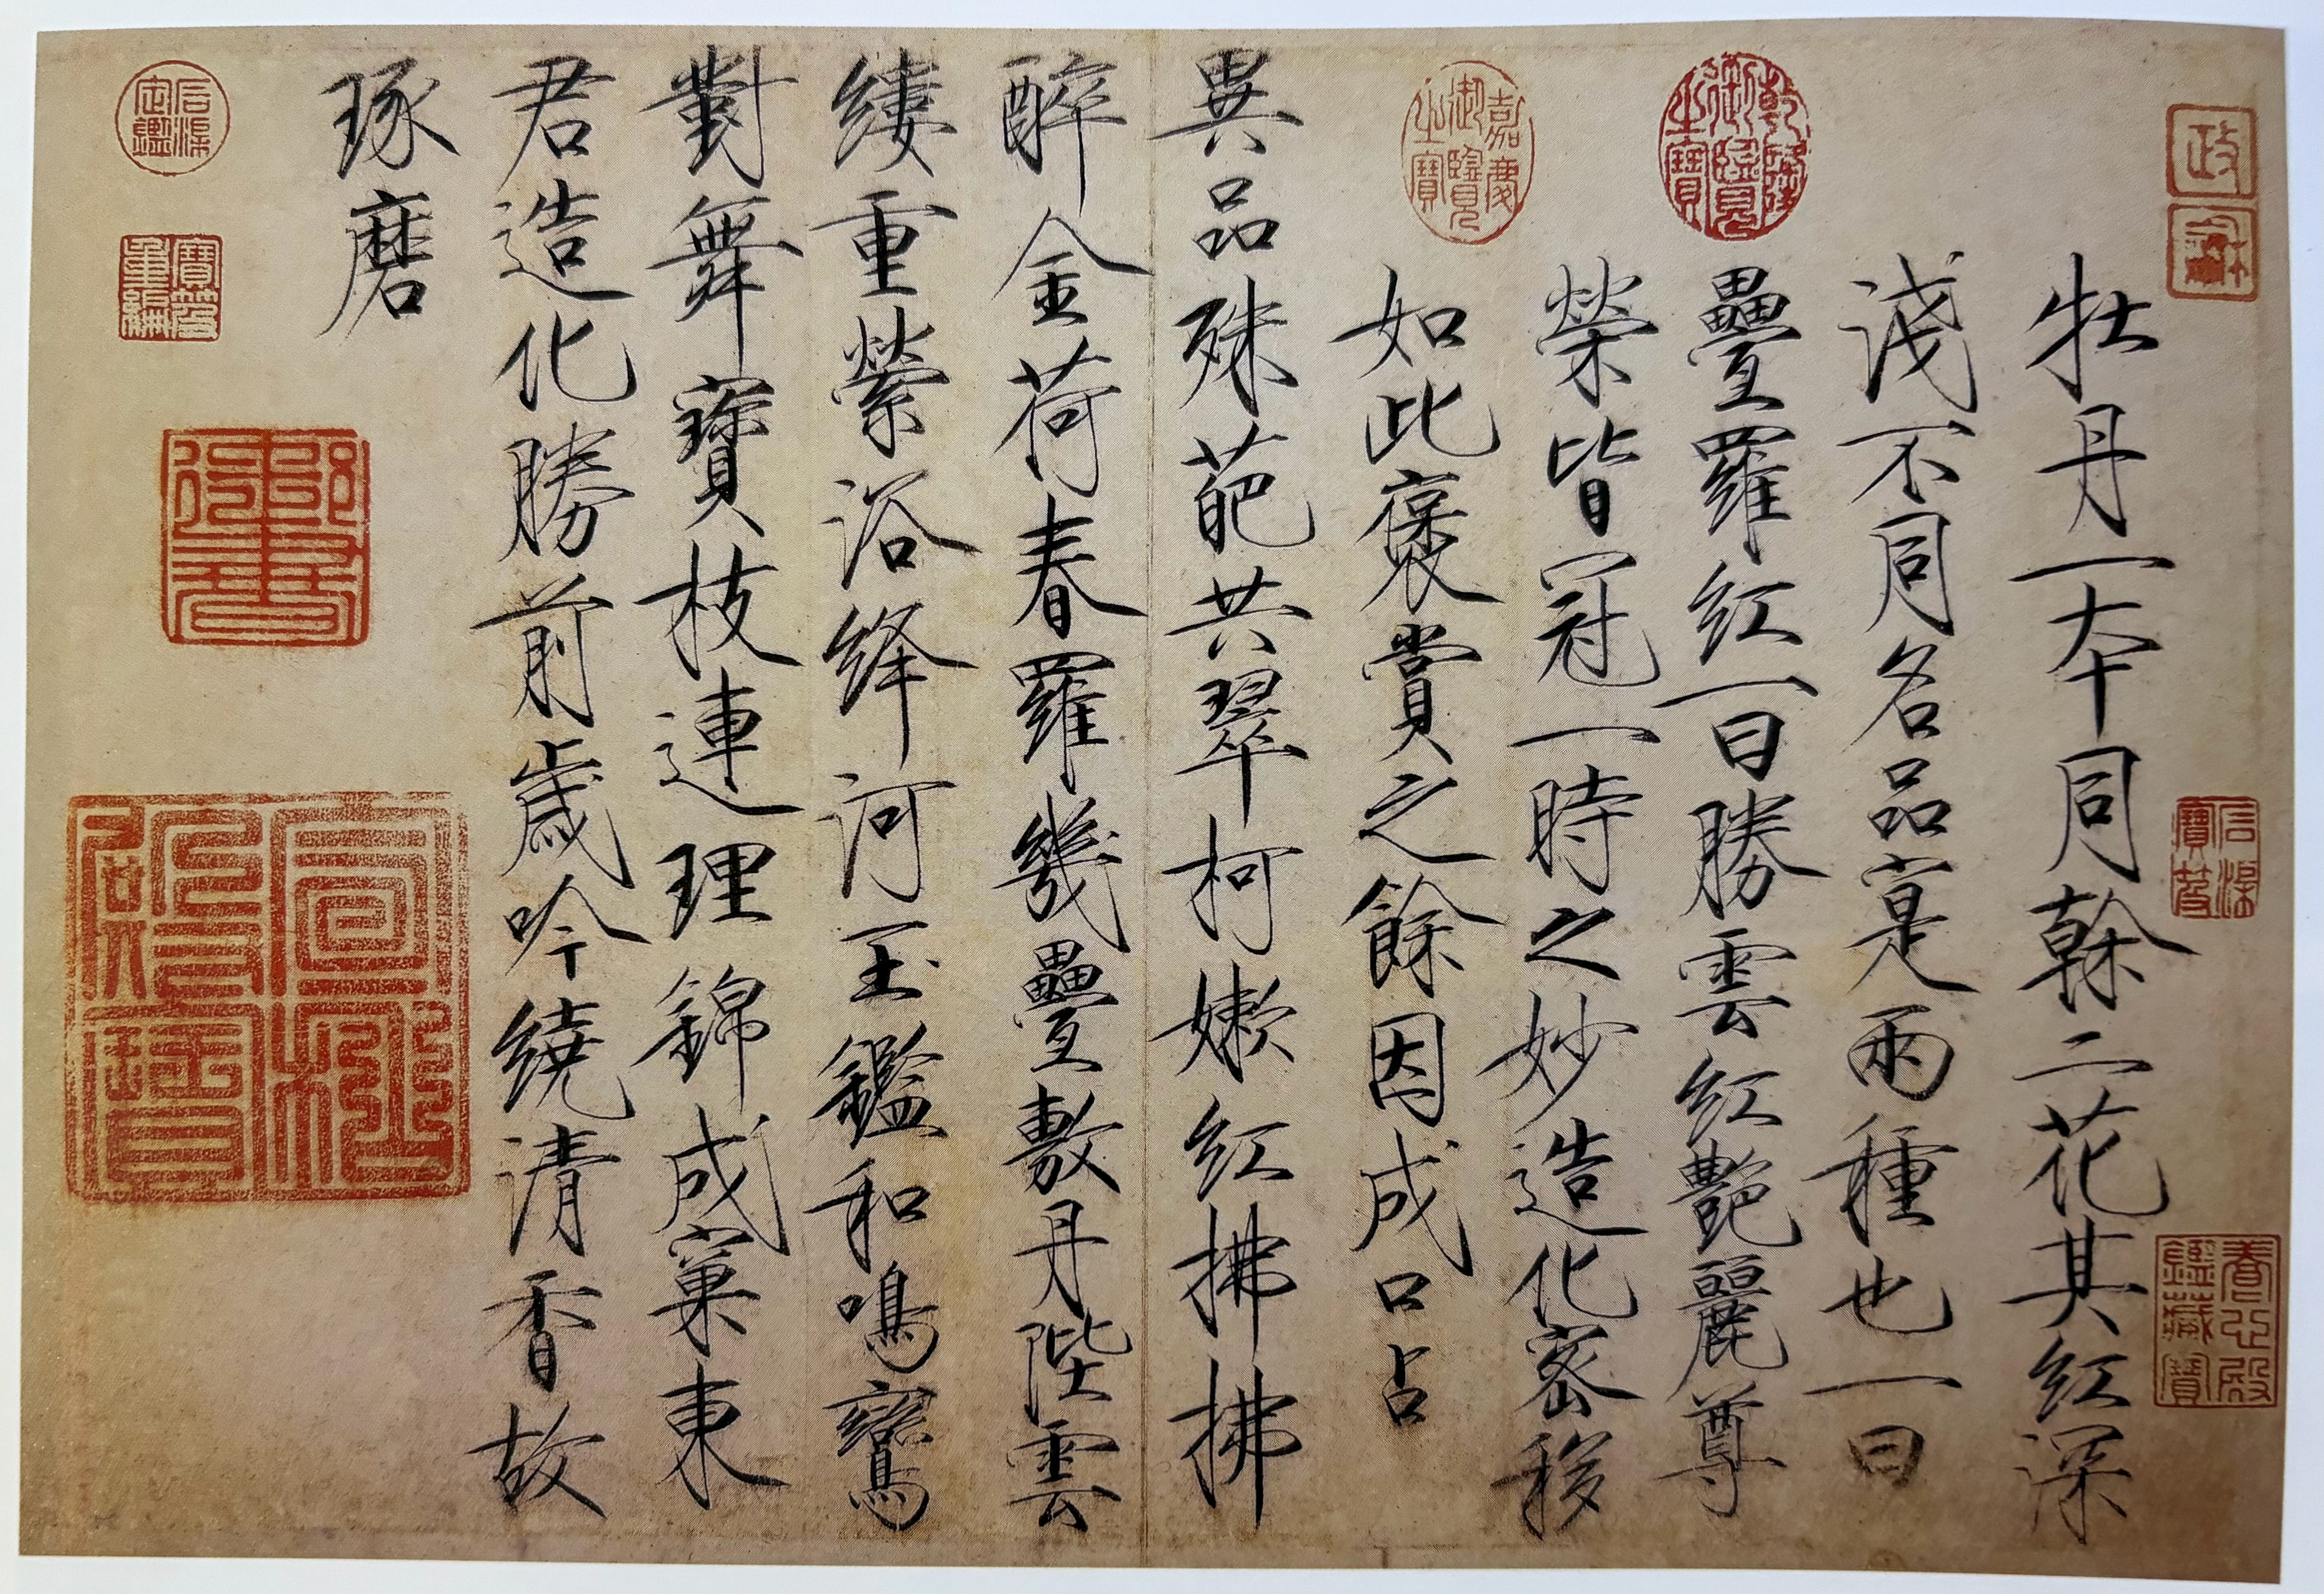 牡丹一本同榦二花其紅深
淺不同名品寔兩種也一曰
疊羅紅一曰勝雲紅艷麗尊
榮皆冠一時之妙造化密移
如此褒賞之餘因成口占
異品殊葩共翠柯嫩紅拂拂
醉金荷春羅幾疊敷丹陛雲
縷重縈浴絳河玉鑑和鳴鸞
對舞寶枝連理錦成窠東
君造化勝前歲吟繞清香故
琢磨
政
龢
乾隆御覽之寶
嘉慶御覽之寶
石渠寶笈
養心殿鑑藏寶
石渠定鑑
寶笈重編
御書